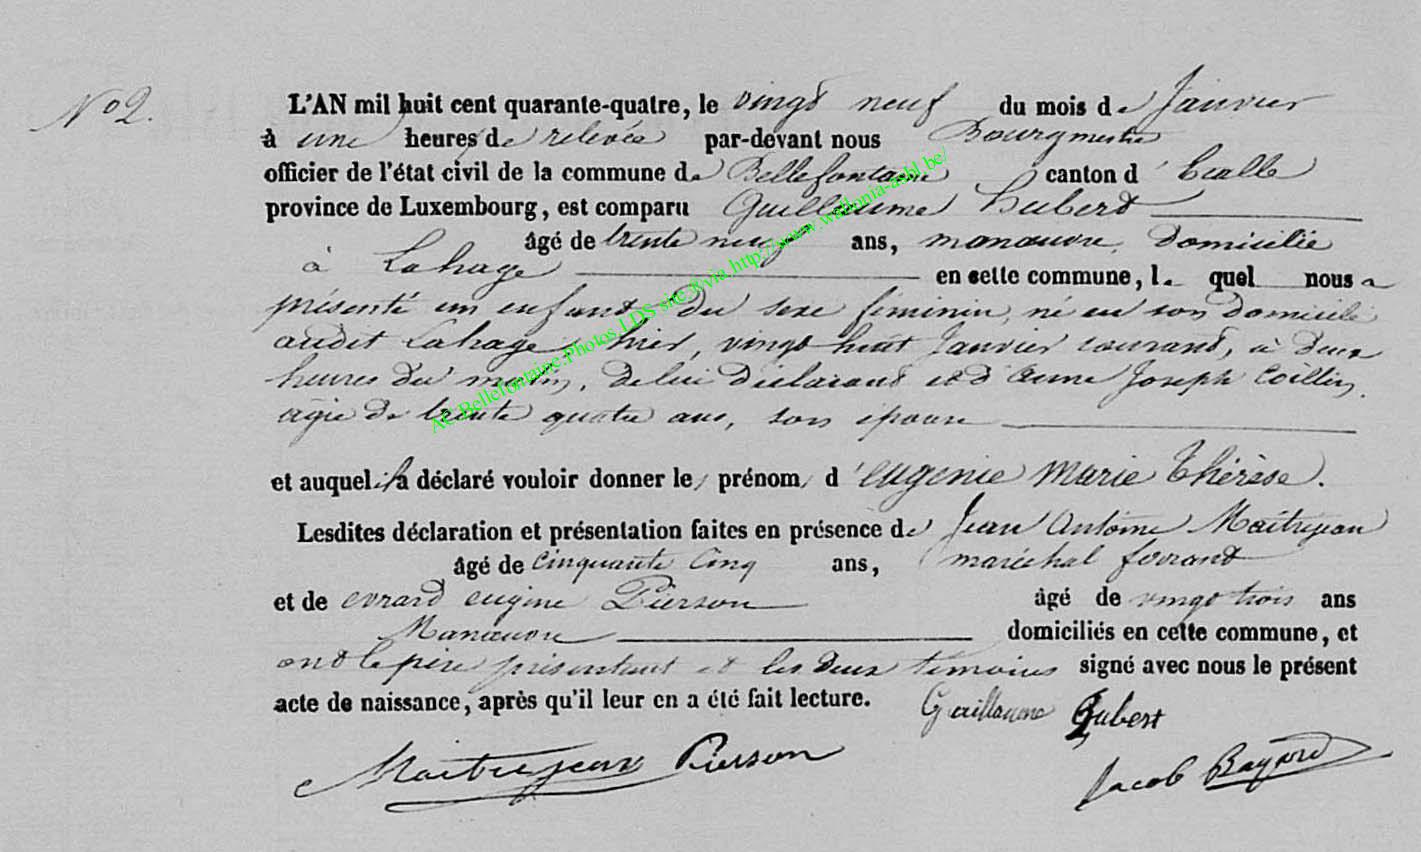 No 2.
L'AN mil huit cent quarante-quatre, le vingt neuf du mois de Janvier
à une heures de relevée par-devant nous Bourgmestre
officier de l'état civil de la commune de Bellefontaine canton d'Etalle
province de Luxembourg, est comparu Guillaume Hubert
âgé de trente neuf ans, manœuvre, domicilié
à Lahage en cette commune, le quel nous a
présenté un enfant du sexe féminin, né en son domicile
audit Lahage, hier, vingt huit Janvier courant, à deux
heures du matin, de lui déclarant et d'anne Joseph Collin,
agée de trente quatre ans, son épouse
et auquel il a déclaré vouloir donner le prénom d'eugenie Marie Thérèse.
Lesdites déclaration et présentation faites en présence de Jean Antoine Maitrejean
âgé de cinquante cinq ans, maréchal ferrant
et de evrard eugène Pierson âgé de vingt trois ans
Manœuvre domiciliés en cette commune, et
ont le père présentant et les deux témoins signé avec nous le présent
acte de naissance, après qu'il leur en a été fait lecture. Guillaume Hubert
Maitrejean Pierson Jacob Bayard
AC Bellefontaine.Photos LDS site @via http://www.wallonia-asbl.be/